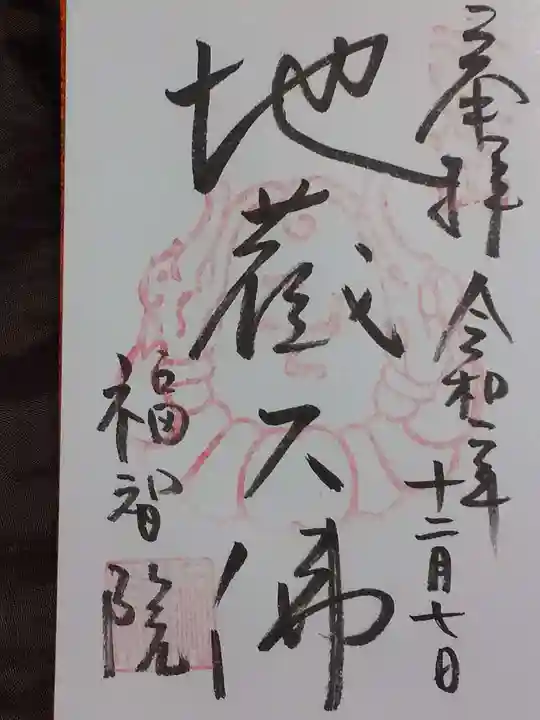 奉拝 令和二年十二月七日
地蔵大佛
福智院